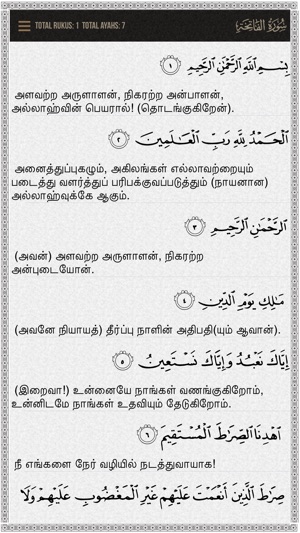 TOTAL RUKUS: 1 TOTAL AYAHS: 7 سُورَةُ الفَاتِحَةِ
بِسْمِ اللَّهِ الرَّحْمَٰنِ الرَّحِيمِ ١
அளவற்ற அருளாளன், நிகரற்ற அன்பாளன்,
அல்லாஹ்வின் பெயரால்! (தொடங்குகிறேன்).
الْحَمْدُ لِلَّهِ رَبِّ الْعَالَمِينَ ٢
அனைத்துப்புகழும், அகிலங்கள் எல்லாவற்றையும்
படைத்து வளர்த்துப் பரிபக்குவப்படுத்தும் (நாயனான)
அல்லாஹ்வுக்கே ஆகும்.
الرَّحْمَٰنِ الرَّحِيمِ ٣
(அவன்) அளவற்ற அருளாளன், நிகரற்ற
அன்புடையோன்.
مَالِكِ يَوْمِ الدِّينِ ٤
(அவனே நியாயத்) தீர்ப்பு நாளின் அதிபதி(யும் ஆவான்).
إِيَّاكَ نَعْبُدُ وَإِيَّاكَ نَسْتَعِينُ ٥
(இறைவா!) உன்னையே நாங்கள் வணங்குகிறோம்,
உன்னிடமே நாங்கள் உதவியும் தேடுகிறோம்.
اهْدِنَا الصِّرَاطَ الْمُسْتَقِيمَ ٦
நீ எங்களை நேர் வழியில் நடத்துவாயாக!
صِرَاطَ الَّذِينَ أَنْعَمْتَ عَلَيْهِمْ غَيْرِ الْمَغْضُوبِ عَلَيْهِمْ وَلَا